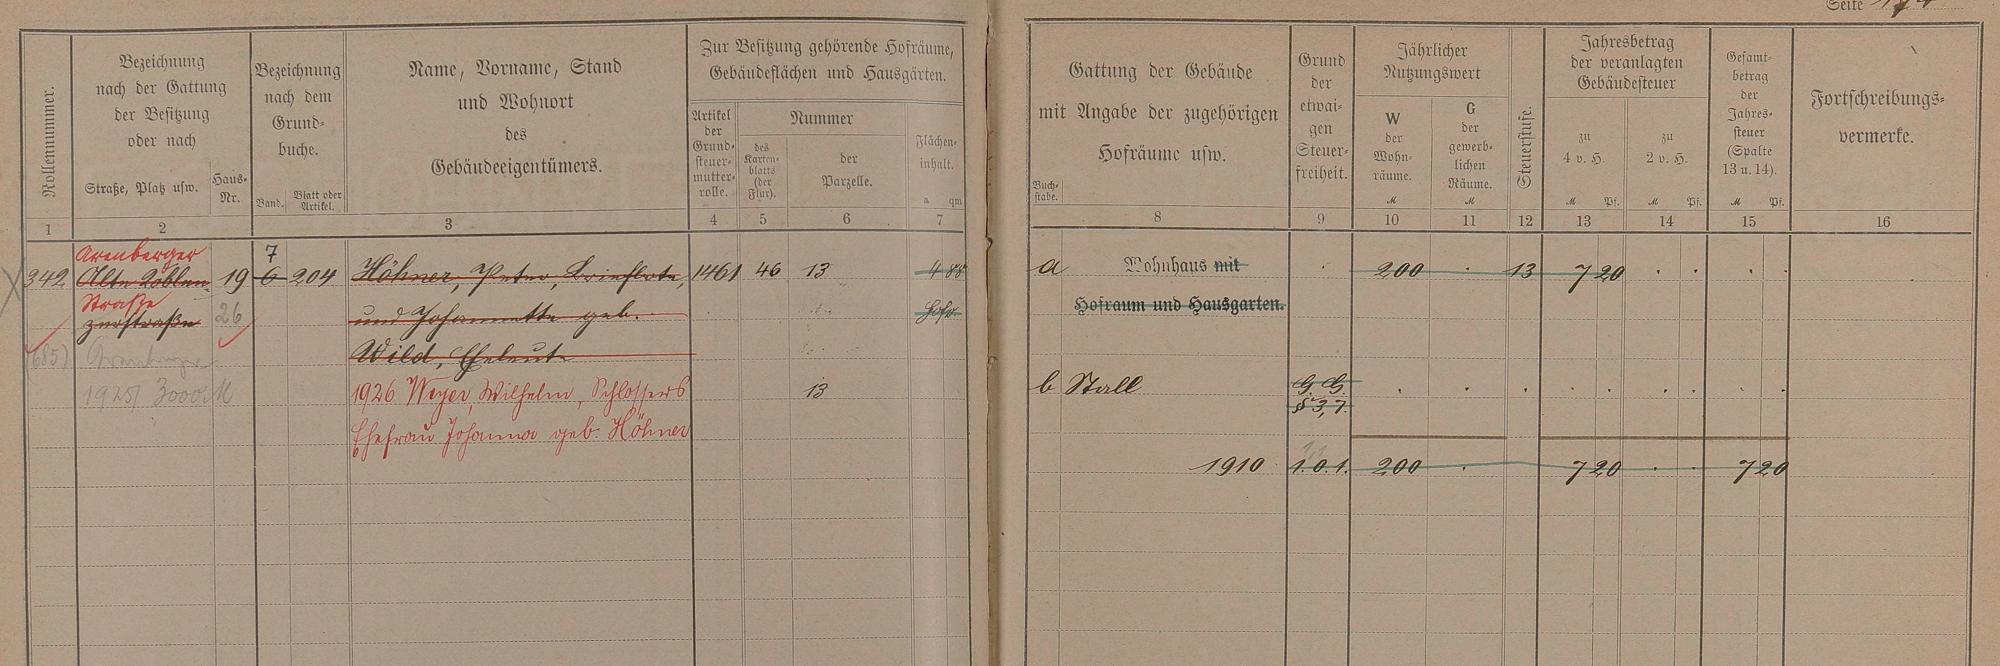 Seite
Rollennummer.
Bezeichnung
nach der Gattung
der Besitzung
oder nach
Straße, Platz usw.
Haus-
Nr.
Bezeichnung
nach dem
Grund-
buche.
Band.
Blatt oder
Artikel.
Name, Vorname, Stand
und Wohnort
des
Gebäudeeigentümers.
Zur Besitzung gehörende Hofräume,
Gebäudeflächen und Hausgärten.
Artikel
der
Grund-
steuer-
mutter-
rolle.
Nummer
des
Karten-
blatts
(der
Flur).
der
Parzelle.
Flächen-
inhalt.
a qm
Gattung der Gebäude
mit Angabe der zugehörigen
Hofräume usw.
Buch-
stabe.
Grund
der
etwai-
gen
Steuer-
freiheit.
Jährlicher
Nutzungswert
W
der
Wohn-
räume.
M
G
der
gewerb-
lichen
Räume.
M
Steuerstufe.
Jahresbetrag
der veranlagten
Gebäudesteuer
zu
4 v. H.
M Pf.
zu
2 v. H.
M Pf.
Gesamt-
betrag
der
Jahres-
steuer
(Spalte
13 u. 14).
M Pf.
Fortschreibungs-
vermerke.
1 2 3 4 5 6 7 8 9 10 11 12 13 14 15 16
Arenberger 7
342 Alte Koblen- 19 6 204 Höhner, Peter, Briefbote, 1461 46 13 4 88 a Wohnhaus mit 200 13 7 20
Straße
zerstraße 26 und Johannette geb. Hofr. Hofraum und Hausgarten.
(685) Arenberger Wild, Eheleute
1925/ 3000 M 1926 Weyer, Wilhelm, Schlossers 13 b Stall G. G.
§ 3, 7.
Ehefrau Johanna geb. Höhner
1910 1.0.1. 200 7 20 7 20